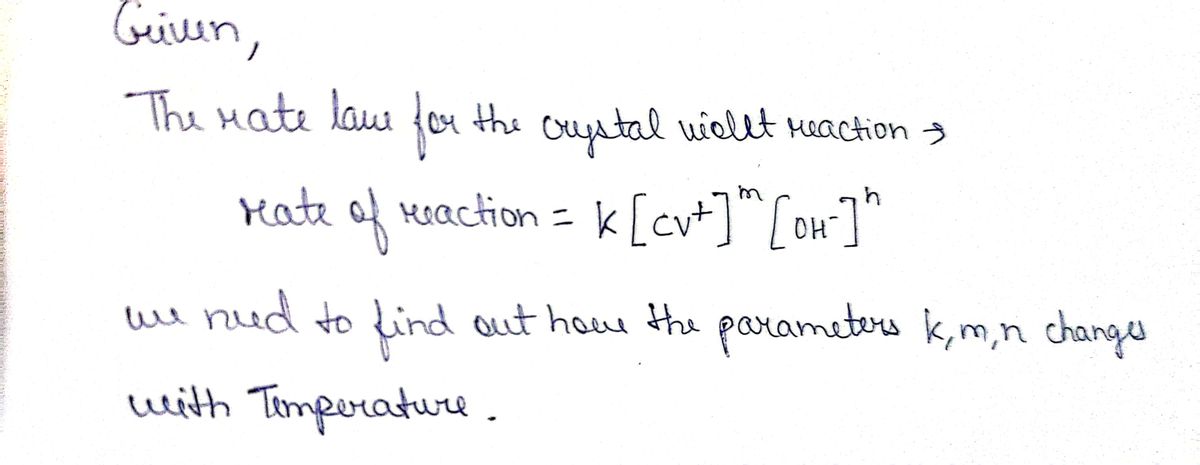 Given,
The rate law for the crystal violet reaction →
rate of reaction = k [cv⁺]ᵐ [OH⁻]ⁿ
we need to find out how the parameters k,m,n changes
with Temperature.